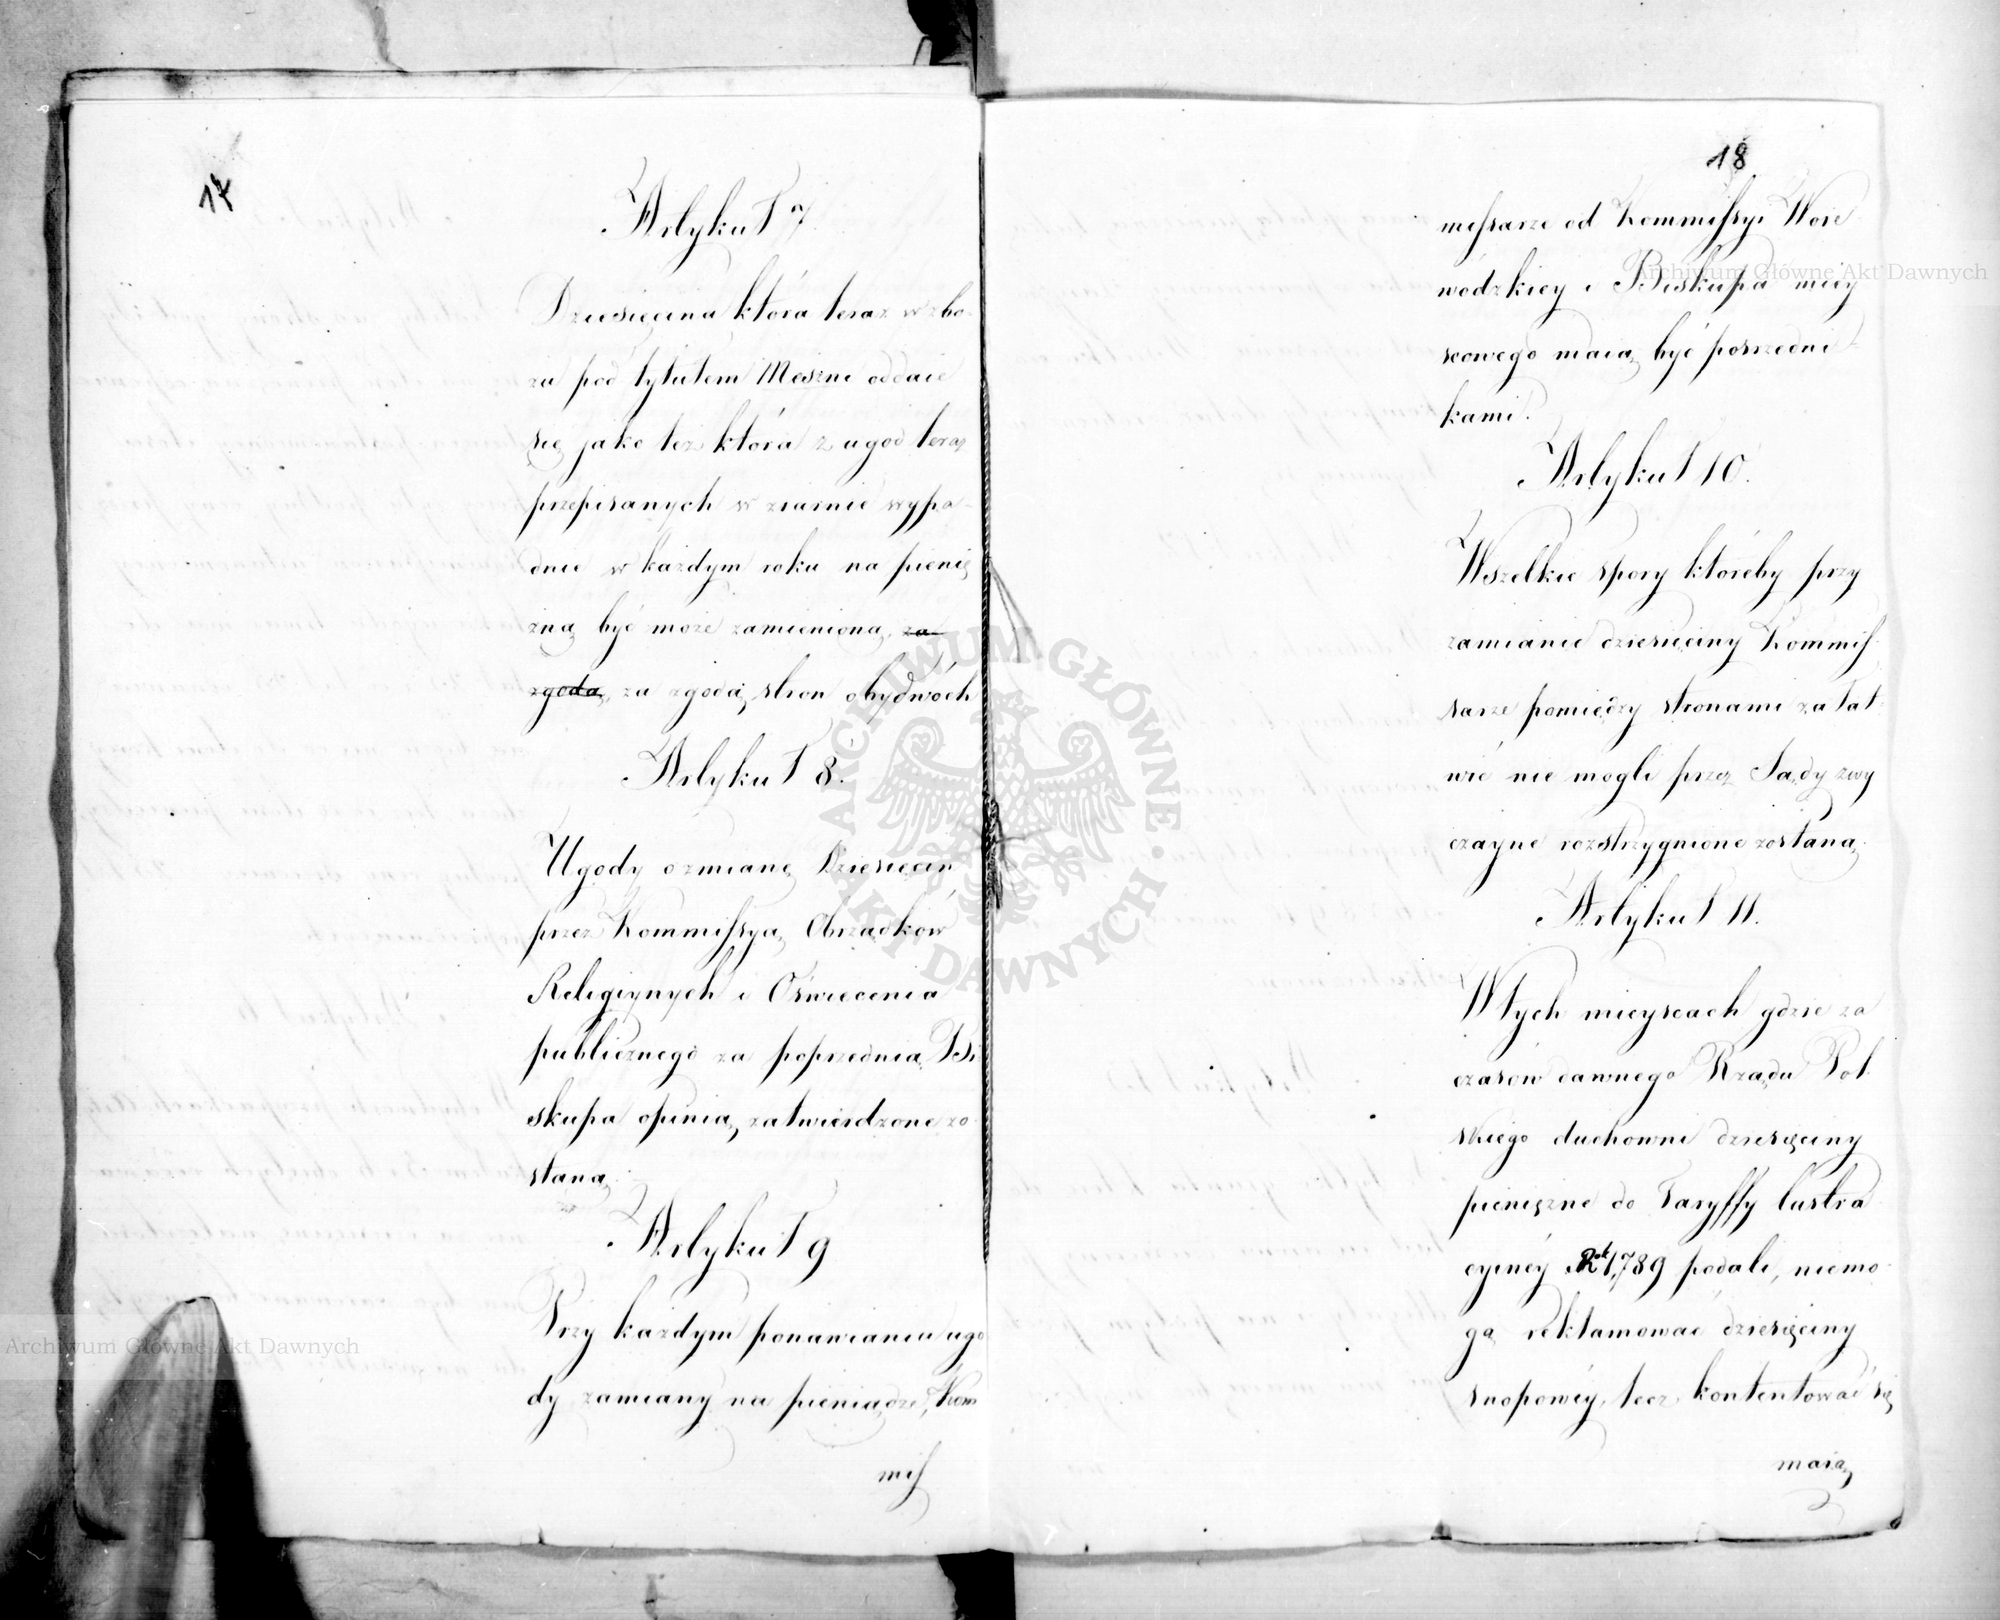 17
Artykuł 7
Dziesięcina która teraz w zbo-
żu pod tytułem Meszne oddaie
się jako też która z ugod teraz
przepisanych w ziarnie wypa-
dnie w każdym roku na pienię
żną być może zamieniona, za
zgodą, za zgodą stron obydwóch
Artykuł 8.
Ugody o zmianę Dziesięcin
przez Kommissyą Obrządków
Religiynych i Oświecenia
publicznego za poprzednią Bi
skupa opinią, zatwierdzone zo-
staną.
Artykuł 9
Przy każdym ponawianiu ugo
dy zamiany na pieniądze, Kom
mis
18
missarze od Kommissyi Woie
wódzkiey i Biskupa miey
scowego maią być pośrzedni-
kami.
Artykuł 10.
Wszelkie spory któreby przy
zamianie dziesięciny Kommis-
sarze pomiędzy stronami załat-
wić nie mogli przez Sądy zwy
czayne rozstrzygnione zostaną.
Artykuł 11.
W tych mieyscach gdzie za
czasów dawnego Rządu Pol-
skiego duchowni dziesięciny
pieniężne do Taryffy lustra-
cyiney Rok 1,789 podali, niemo-
gą reklamować dziesięciny
snopowéy, lecz kontentować się
maią
Archiwum Główne Akt Dawnych
Archiwum Główne Akt Dawnych
ARCHIWUM GŁÓWNE AKT DAWNYCH